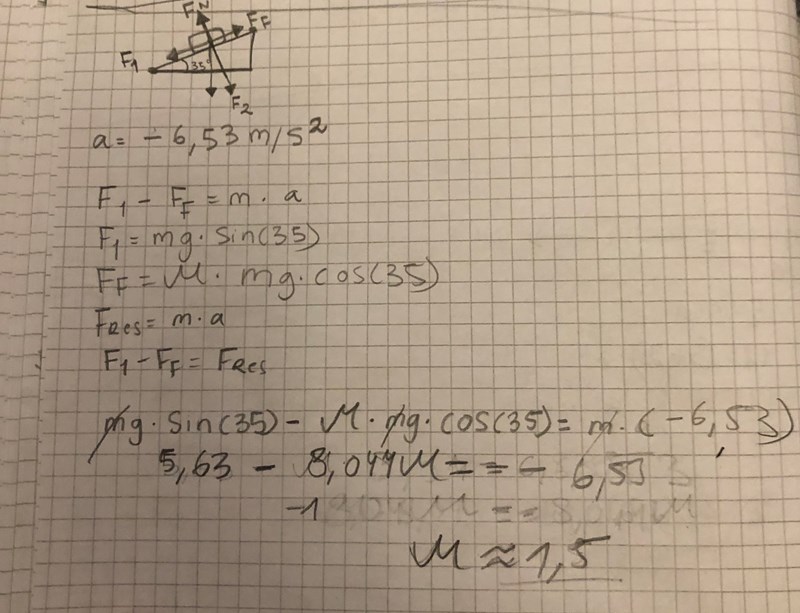 F_N F_F
F_1 35°
F_2
a = - 6,53 m/s²
F_1 - F_F = m · a
F_1 = mg · sin(35)
F_F = μ · mg · cos(35)
F_Res = m · a
F_1 - F_F = F_Res
mg · sin(35) - μ · mg · cos(35) = m · (-6,53)
5,63 - 8,044μ = = - 6,53
-1
μ ≈ 1,5